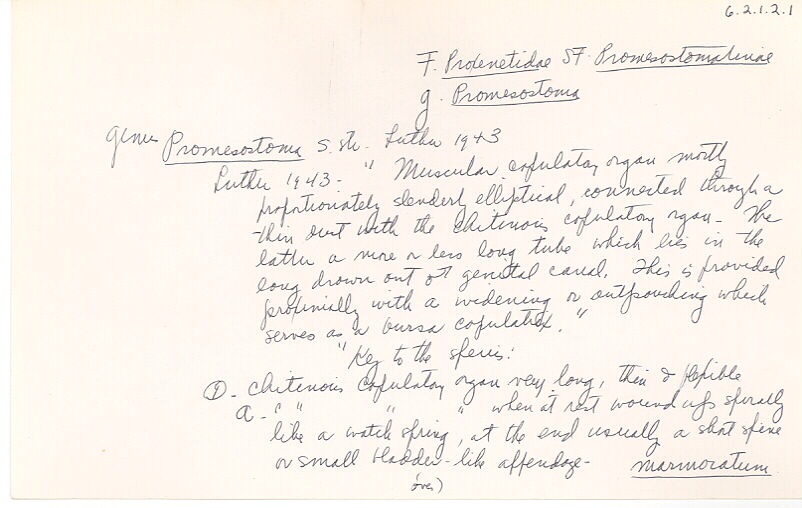 6.2.1.2.1
F. Proxenetidae SF. Promesostomatinae
g. Promesostoma
genus Promesostoma s. str. Luther 1943
Luther 1943 - " Muscular copulatory organ mostly
proportionately slenderly elliptical, connected through a
thin duct with the chitenous copulatory organ - The
latter a more or less long tube which lies in the
long drawn out ♂ genital canal. This is provided
proximally with a widening or outpouching which
serves as a bursa copulatrix."
"Key to the species:
① - Chitenous copulatory organ very long, thin & flexible
a - " " " " when at rest wound up spirally
like a watch spring, at the end usually a short spine
or small bladder-like appendage - marmoratum
(over)